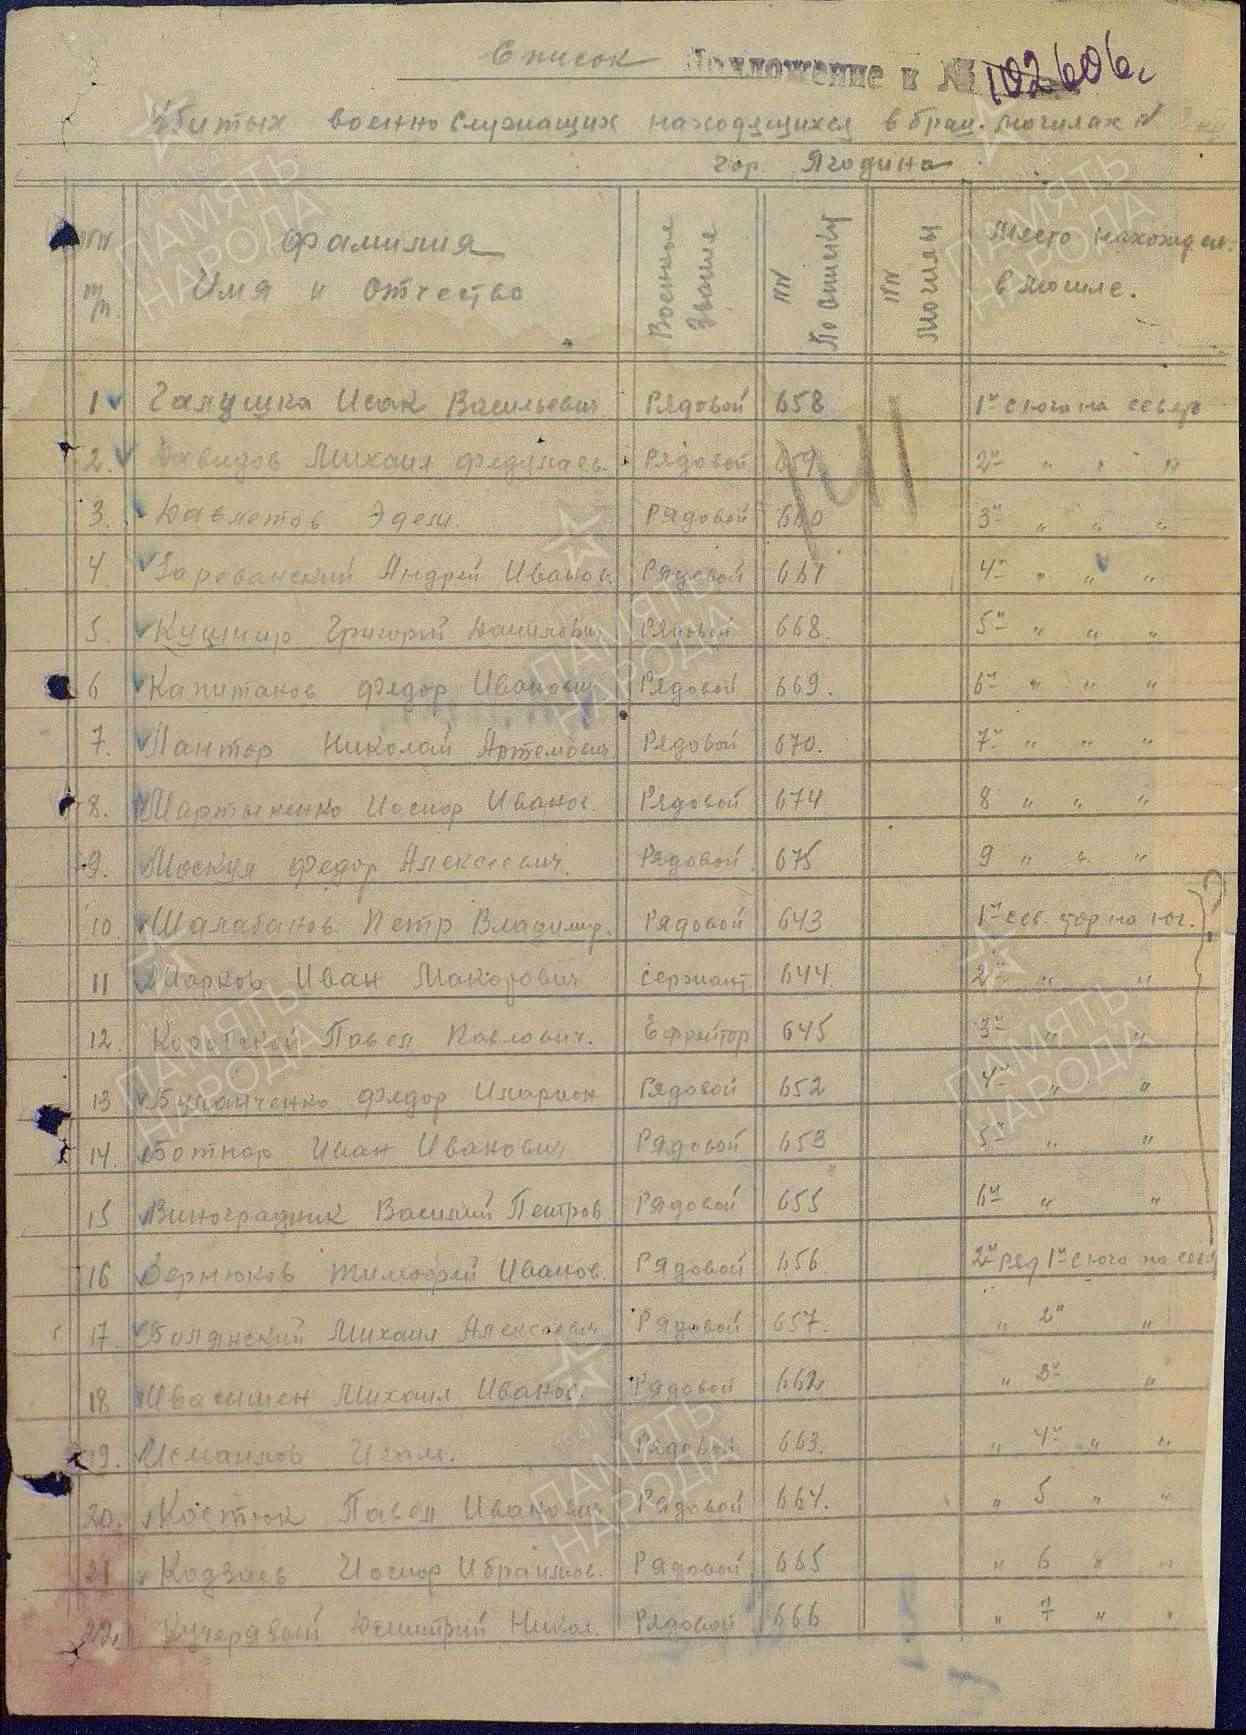 Список Приложение к № 102606с
Убитых военнослужащих находящихся в брат. могилах
гор. Ягодина
NN пп Фамилия Имя и Отчество Военные Звание NN По списку NN Могилы Место нахожден. в могиле.
1 Галушка Исак Васильевич Рядовой 658 1й с юга на север
2. Давидов Михаил Рядовой 659 2й " " "
3. Давлетов Эдем. Рядовой 660 3й " " "
4 Зарованский Андрей Иванов. Рядовой 661 4й " " "
5. Кушнир Григорий Данилович Рядовой 668. 5й " " "
6 Капитанов Федор Иванович Рядовой 669. 6й " " "
7. Пантор Николай Артемович Рядовой 670. 7й " " "
8. Мартыненко Иосиф Иванов. Рядовой 674 8 " " "
9. Москул Федор Алексеевич. Рядовой 675 9 " " "
10. Шалабанов Петр Владимир. Рядовой 643 1й сев. стор на юг.
11 Марков Иван Макарович Сержант 644 2й " "
12. Павел Павлович. Ефрейтор 645 3й " "
13 Федор Иларион Рядовой 652 4й " "
14. Ботнар Иван Иванович Рядовой 653 5й " "
15 Виноградник Василий Петров Рядовой 655 6й " "
16 Тимофей Иванов. Рядовой 656 2й ряд 1й с юга на сев
17. Михаил Алексеевич Рядовой 657. " 2й "
18 Ивасишен Михаил Иванов. Рядовой 662 " 3й "
19. Исмаилов Рядовой 663. " 4й " "
20. Костюк Павел Иванович Рядовой 664. " 5 " "
21 Кодзаев Иосиф Ибраимов. Рядовой 665 " 6 " "
22. Кучерявый Дмитрий Никол. Рядовой 666 " 7й " "
ПАМЯТЬ НАРОДА